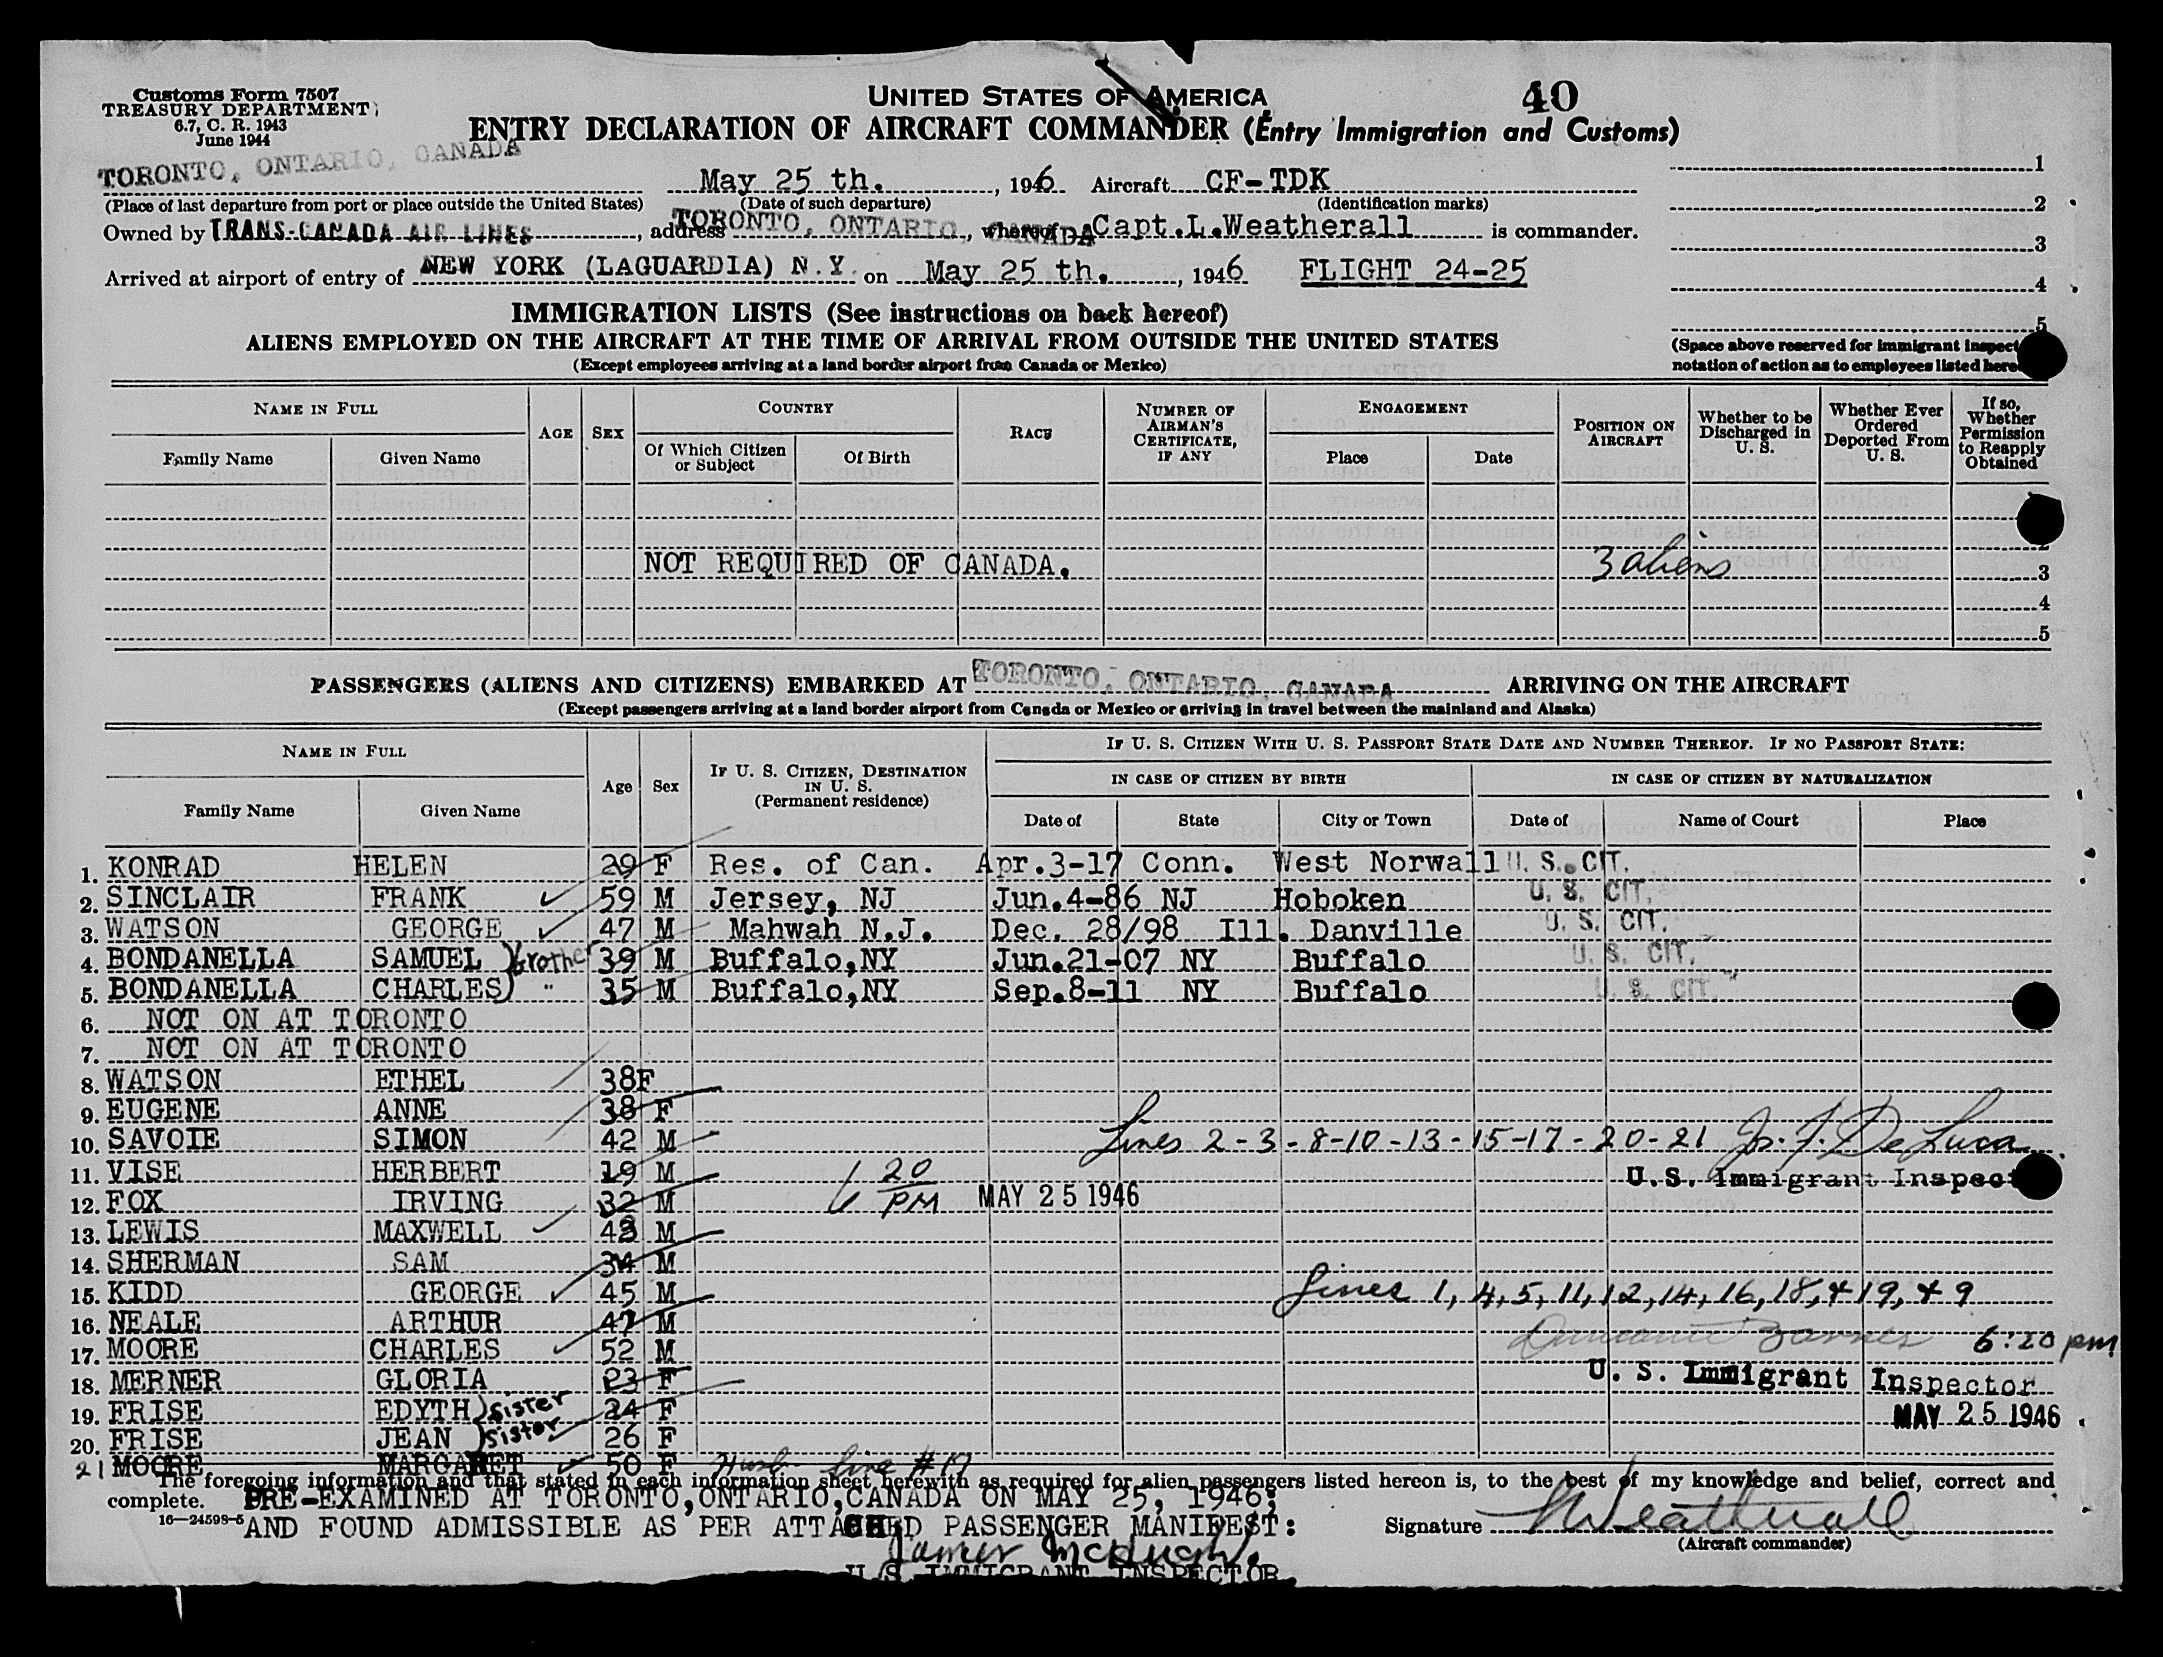 Customs Form 7507
TREASURY DEPARTMENT
6.7, C. R. 1943
June 1944
UNITED STATES OF AMERICA
40
ENTRY DECLARATION OF AIRCRAFT COMMANDER (Entry Immigration and Customs)
TORONTO, ONTARIO, CANADA May 25 th., 1946 Aircraft CF-TDK 1
(Place of last departure from port or place outside the United States) (Date of such departure) (Identification marks) 2
Owned by TRANS-CANADA AIR LINES, address TORONTO, ONTARIO, CANADA, whereof Capt.L.Weatherall is commander. 3
Arrived at airport of entry of NEW YORK (LAGUARDIA) N.Y. on May 25 th., 1946 FLIGHT 24-25 4
IMMIGRATION LISTS (See instructions on back hereof) 5
ALIENS EMPLOYED ON THE AIRCRAFT AT THE TIME OF ARRIVAL FROM OUTSIDE THE UNITED STATES
(Space above reserved for immigrant inspect
(Except employees arriving at a land border airport from Canada or Mexico)
notation of action as to employees listed here
NAME IN FULL
Family Name Given Name
AGE SEX
COUNTRY
Of Which Citizen or Subject Of Birth
RACE
NUMBER OF AIRMAN'S CERTIFICATE, IF ANY
ENGAGEMENT
Place Date
POSITION ON AIRCRAFT
Whether to be Discharged in U. S.
Whether Ever Ordered Deported From U. S.
If so, Whether Permission to Reapply Obtained
NOT REQUIRED OF CANADA. 3 aliens 3
4
5
PASSENGERS (ALIENS AND CITIZENS) EMBARKED AT TORONTO, ONTARIO, CANADA ARRIVING ON THE AIRCRAFT
(Except passengers arriving at a land border airport from Canada or Mexico or arriving in travel between the mainland and Alaska)
NAME IN FULL
Family Name Given Name
Age Sex
IF U. S. CITIZEN, DESTINATION IN U. S. (Permanent residence)
IF U. S. CITIZEN WITH U. S. PASSPORT STATE DATE AND NUMBER THEREOF. IF NO PASSPORT STATE:
IN CASE OF CITIZEN BY BIRTH IN CASE OF CITIZEN BY NATURALIZATION
Date of State City or Town Date of Name of Court Place
1. KONRAD HELEN 29 F Res. of Can. Apr.3-17 Conn. West Norwall U. S. CIT.
2. SINCLAIR FRANK 59 M Jersey, NJ Jun.4-86 NJ Hoboken U. S. CIT.
3. WATSON GEORGE 47 M Mahwah N.J. Dec. 28/98 Ill. Danville U. S. CIT.
4. BONDANELLA SAMUEL Brother 39 M Buffalo,NY Jun.21-07 NY Buffalo U. S. CIT.
5. BONDANELLA CHARLES " 35 M Buffalo,NY Sep.8-11 NY Buffalo U. S. CIT.
6. NOT ON AT TORONTO
7. NOT ON AT TORONTO
8. WATSON ETHEL 38F
9. EUGENE ANNE 38 F
10. SAVOIE SIMON 42 M Lines 2-3-8-10-13-15-17-20-21 Jo. F. De Luca
11. VISE HERBERT 19 M 6 20 U.S. Immigrant Inspect
12. FOX IRVING 32 M PM MAY 25 1946
13. LEWIS MAXWELL 48 M
14. SHERMAN SAM 34 M
15. KIDD GEORGE 45 M Lines 1, 4, 5, 11, 12, 14, 16, 18, + 19, + 9
16. NEALE ARTHUR 47 M
17. MOORE CHARLES 52 M 6:20 pm
18. MERNER GLORIA 23 F U. S. Immigrant Inspector
19. FRISE EDYTH Sister 24 F MAY 25 1946
20. FRISE JEAN Sister 26 F
21 MOORE MARGARET 50 F Husb- Line # 17
The foregoing information and that stated in each information sheet herewith as required for alien passengers listed hereon is, to the best of my knowledge and belief, correct and
complete. PRE-EXAMINED AT TORONTO,ONTARIO,CANADA ON MAY 25, 1946;
16—24598-5 AND FOUND ADMISSIBLE AS PER ATTACHED PASSENGER MANIFEST: Signature LWeatherall
(Aircraft commander)
James McHugh.
U.S. IMMIGRANT INSPECTOR.